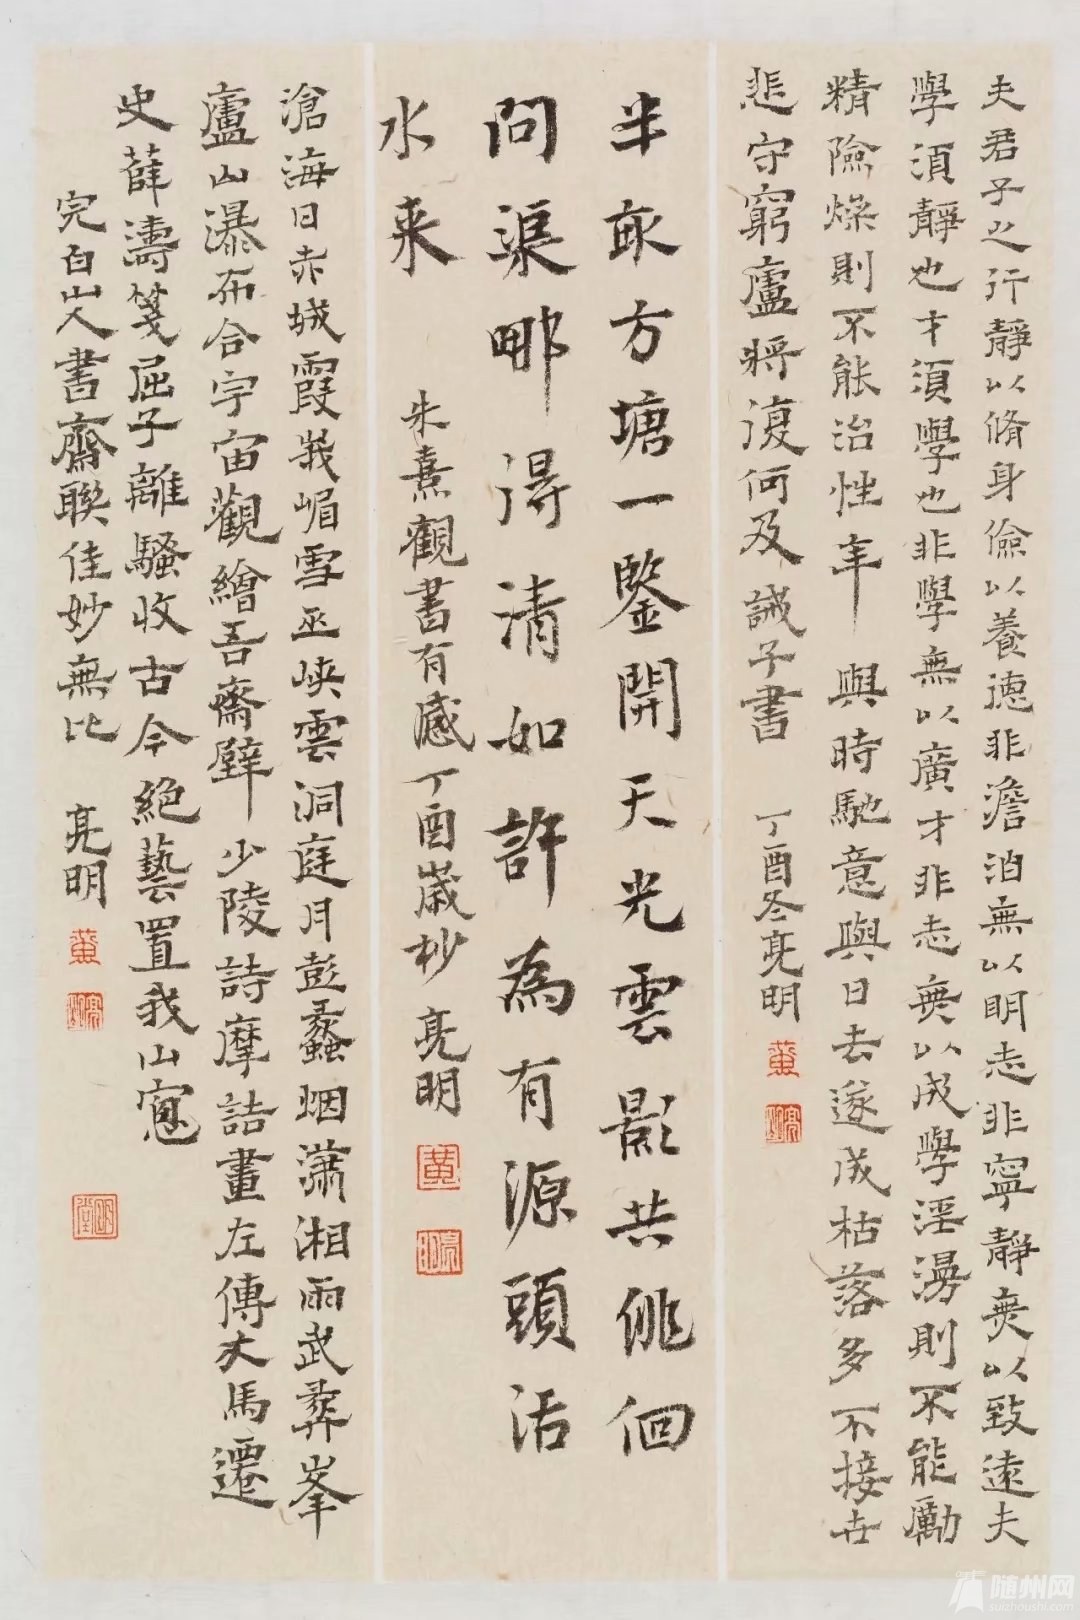 夫君子之行靜以脩身儉以養德非澹泊無以明志非寧靜無以致遠夫
學須靜也才須學也非學無以廣才非志無以成學淫漫則不能勵
精險燥則不能治性年與時馳意與日去遂成枯落多不接世
悲守窮廬將復何及誡子書
丁酉冬亮明
半畝方塘一鑒開天光雲影共徘徊
問渠那得清如許為有源頭活
水來
朱熹觀書有感丁酉歲杪亮明
滄海日赤城霞峩嵋雪巫峽雲洞庭月彭蠡烟瀟湘雨武彞峯
廬山瀑布合宇宙觀繪吾齋壁少陵詩摩詰畫左傳文馬遷
史薛濤箋屈子離騷收古今絕藝置我山窗
完白山人書齋聯佳妙無比亮明
随州网
suizhoushi.com